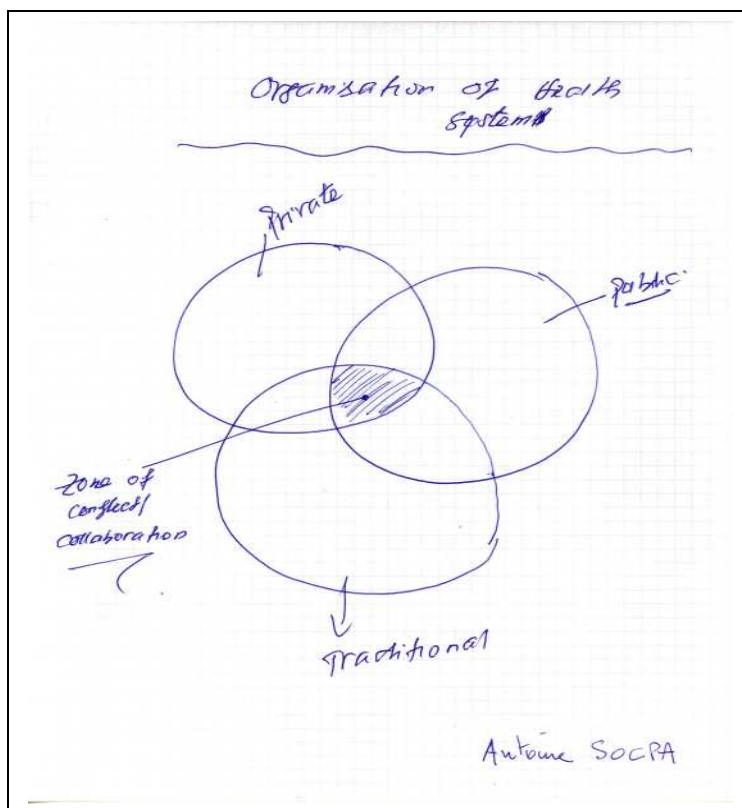 Organisation of Health
System
Private
Public
Zone of
conflict/
collaboration
Traditional
Antoine SOCPA